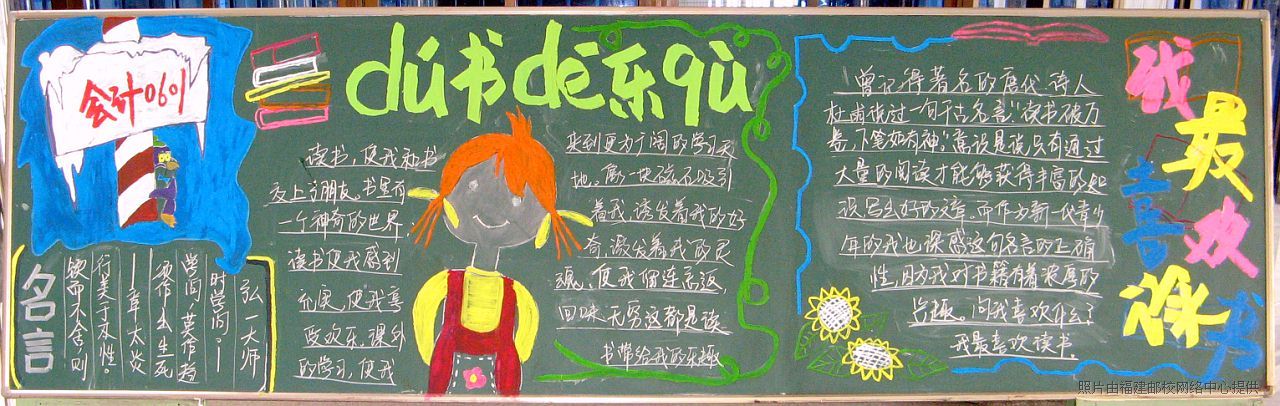 会计0601
dú书de乐qù
读书，使我和书
交上了朋友。书里有
一个神奇的世界
读书使我感到
充实，使我享
受欢乐。课外
的学习，使我
来到更为广阔的学习天
地。像一块磁石吸引
着我，诱发着我的好
奇，激发着我的灵
魂。使我留连忘返，
回味无穷这都是读
书带给我的乐趣
曾记得著名的唐代诗人
杜甫说过一句千古名言“读书破万
卷，下笔如有神”意思是说只有通过
大量的阅读才能够获得丰富的知
识写出好的文章。而作为新一代青少
年的我也深感这句名言的正确
性，因为我对书籍有着浓厚的
兴趣。问我喜欢什么？
我最喜欢读书。
我最喜欢读书
名言
弘一大师
时学问。——
学问，莫作指
须作生生死
——章太炎
行美于本性。
锲而不舍，则
照片由福建邮校网络中心提供